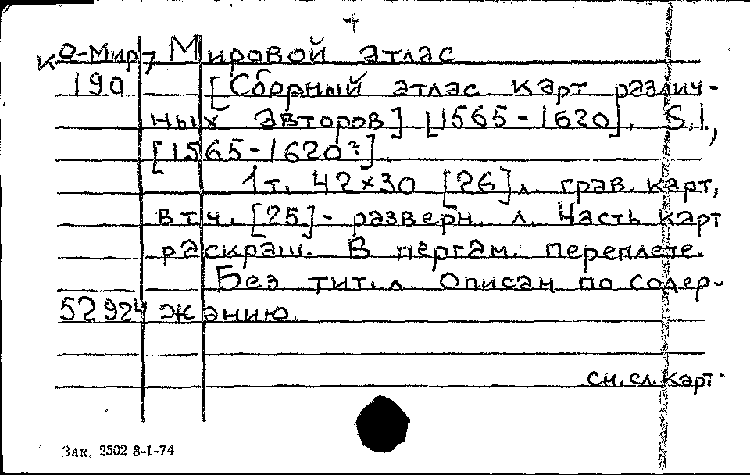 +
К О-Мир 7 Мировой атлас
190 [Сборный атлас карт различ-
ных авторов] [1565-1620]. S.l.,
[1565-1620?]
1т. 42×30 [26] л. грав. карт,
в т.ч. [25]- разверн. л. Часть карт
раскраш. В пергам. переплете.
Без тит. л Описан по содер-
52924 жанию.
см. сл. карт.
Зак. 2502 8-1-74